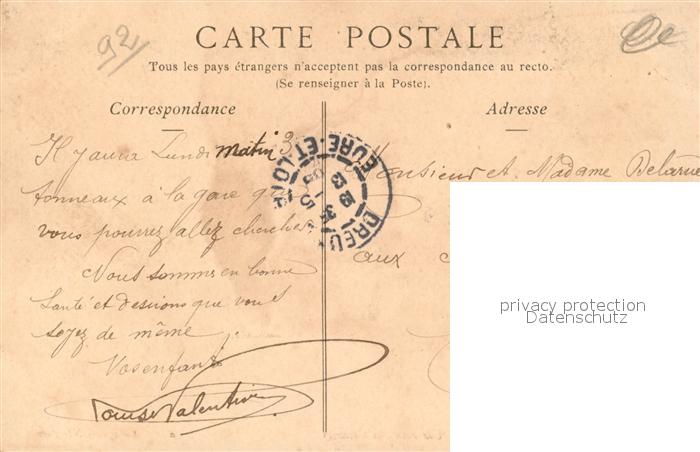 921
CARTE POSTALE
Tous les pays étrangers n'acceptent pas la correspondance au recto.
(Se renseigner à la Poste).
Correspondance
Adresse
Il yaura Lundi matin 3
tonneaux à la gare que
vous pourrez allez chercher
Nous sommes en bonne
santé et desirons que vous
soyez de même
Vos enfants
Louise Valentin
Monsieur et Madame Delarue
aux
DREUX
EURE-ET-LOIR
privacy protection
Datenschutz